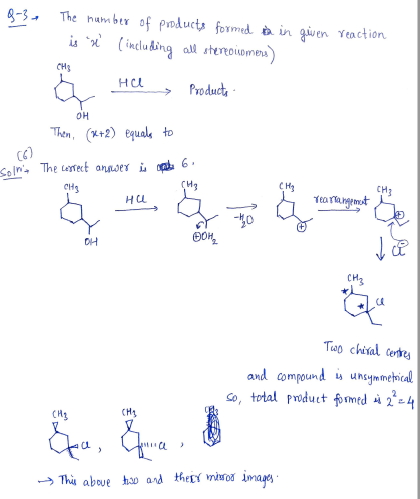 Q-3→ The number of products formed in given reaction
is 'x' (including all stereoisomers)
CH3
HCl
Products.
OH
Then, (x+2) equals to
(6)
Soln:→ The correct answer is 6.
CH3 HCl CH3 -H2O CH3 rearrangement CH3
OH ⊕OH2 ⊕ ⊕
Cl⊖
CH3
Cl
Two chiral centres
and compound is unsymmetrical
So, total product formed is 2²=4
CH3 CH3
Cl, Cl,
→ This above two and their mirror images.